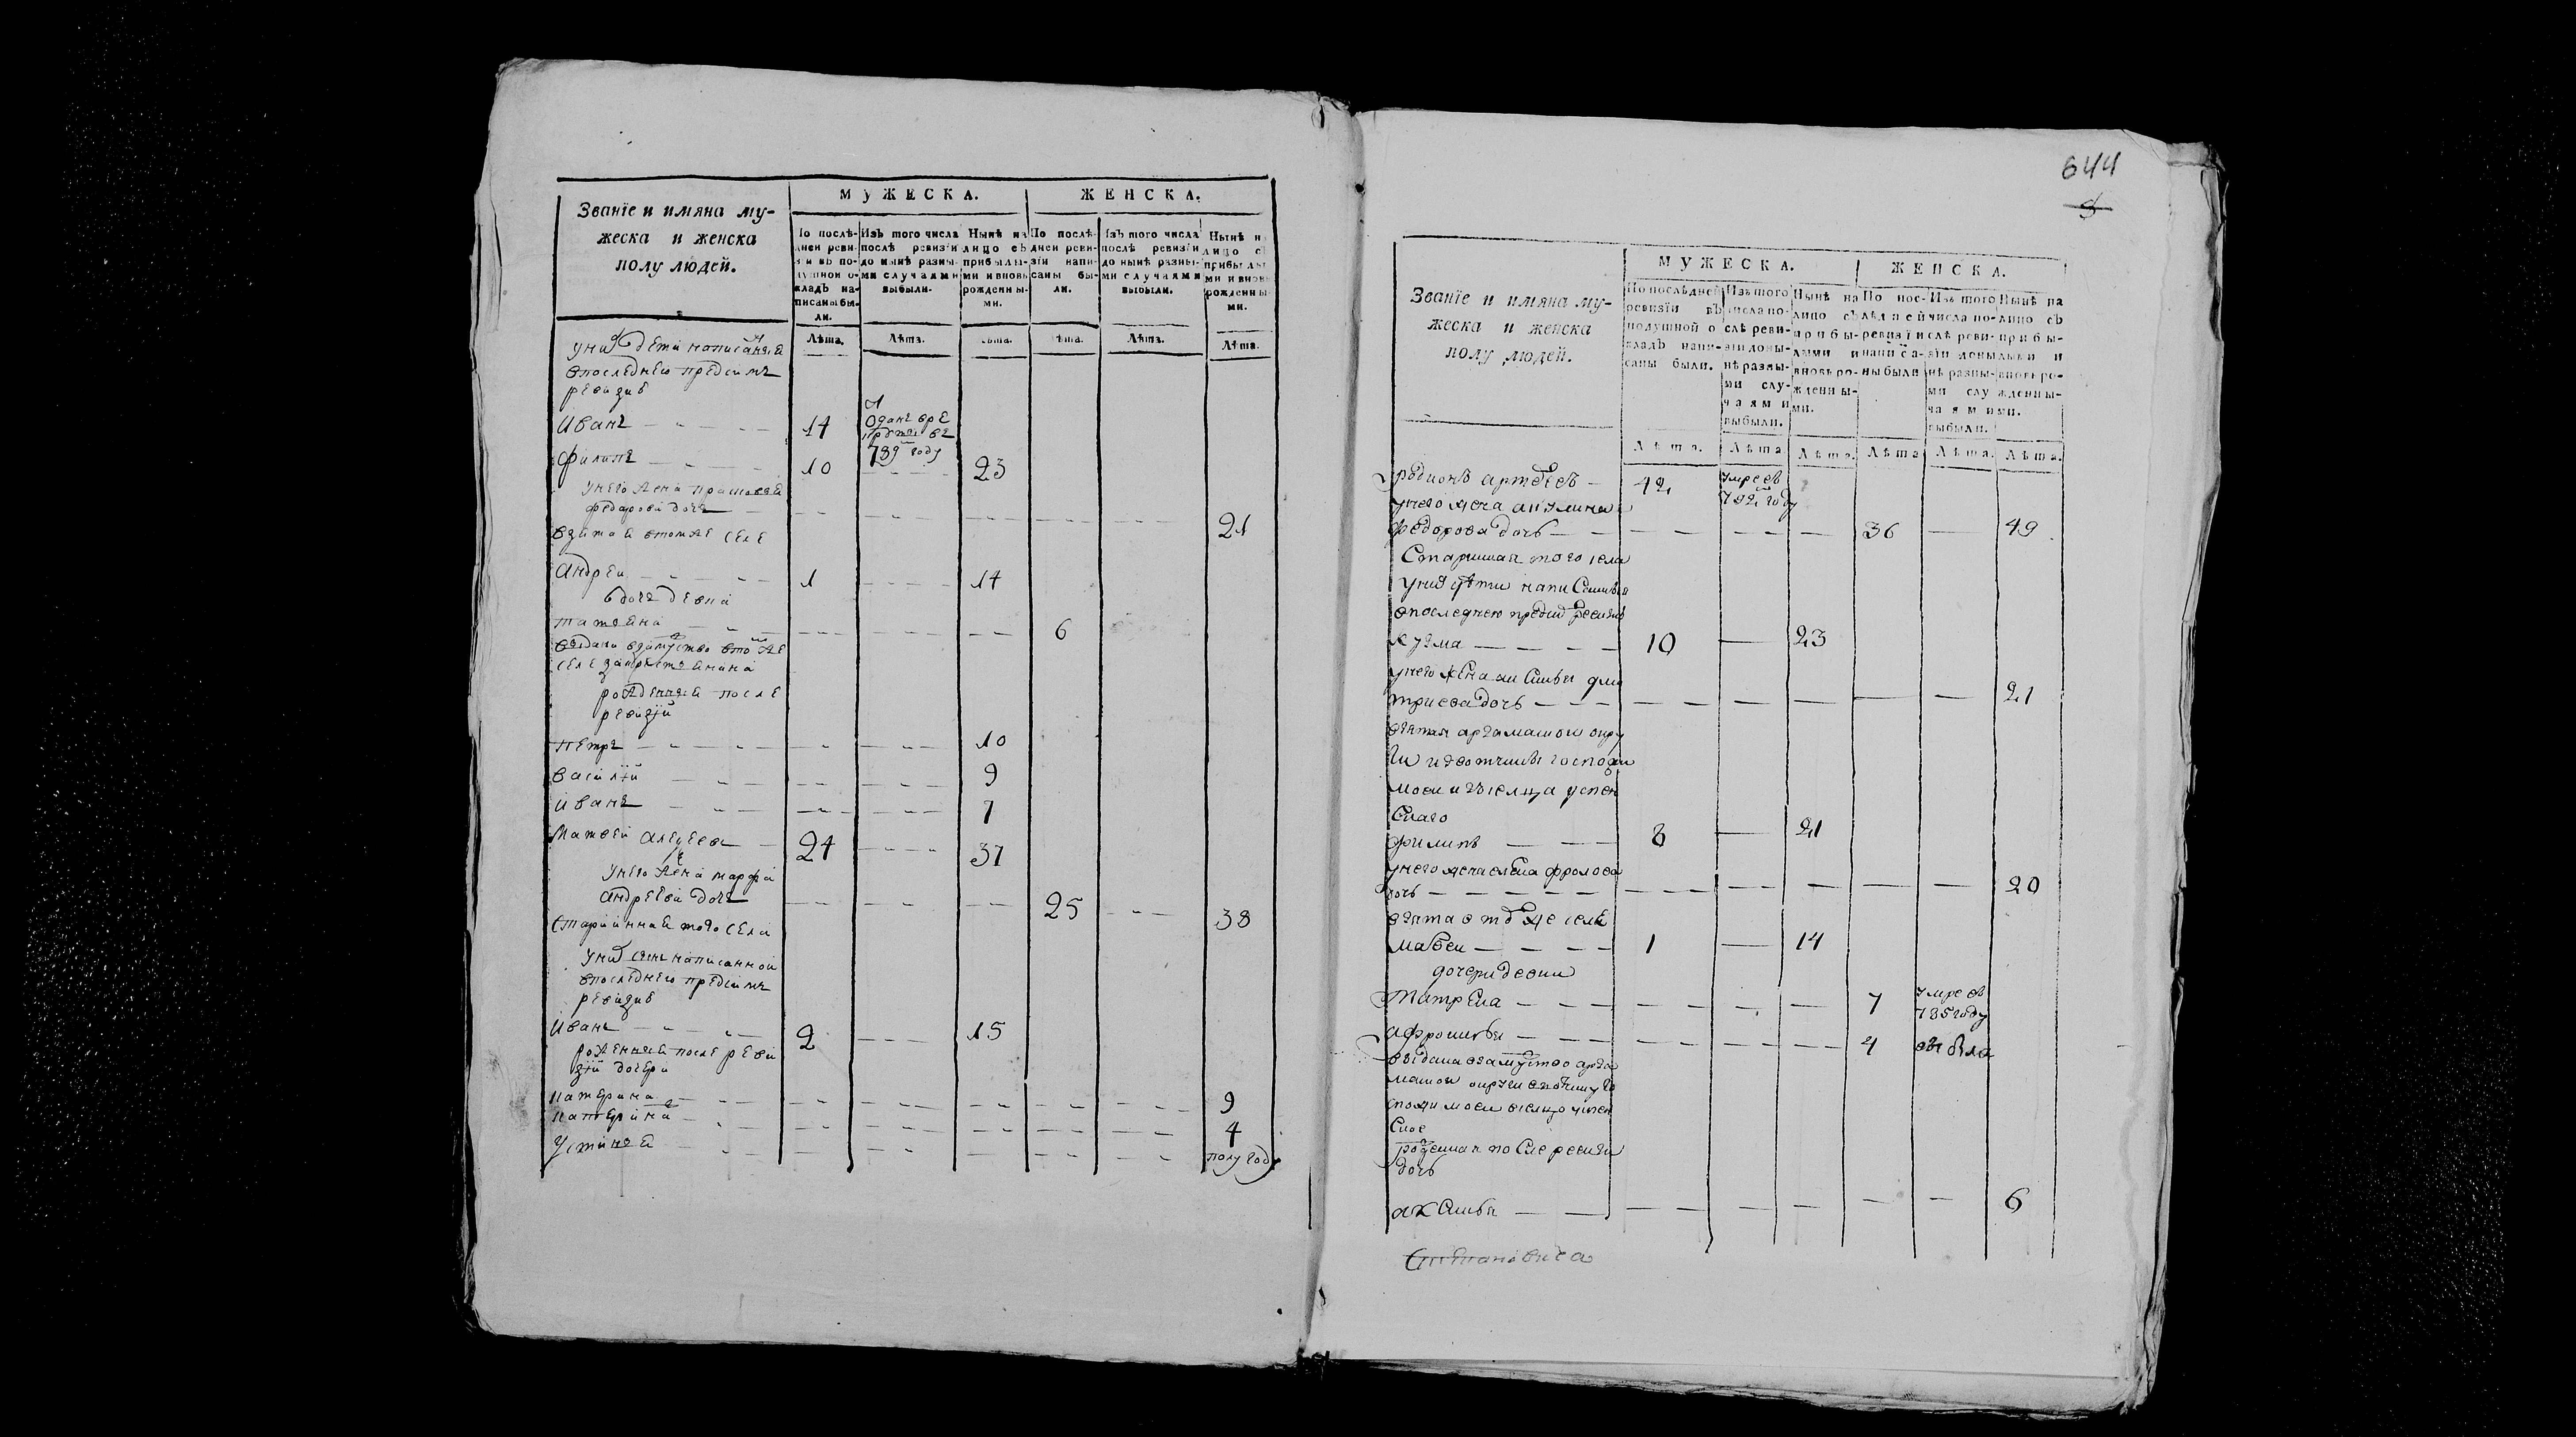 Званїе и имяна му-
жеска и женска
полу людей.
МУЖЕСКА.
ЖЕНСКА.
По послѣ-
дней реви-
зїи въ по-
душной о-
кладъ на-
писаны бы-
ли.
Изъ того числа
послѣ ревизїи
до нынѣ разны-
ми случаями
выбыли.
Нынѣ на
лицо съ
прибылы-
ми и вновь
рожденны-
ми.
По послѣ-
дней реви-
зїи напи-
саны бы-
ли.
Изъ того числа
послѣ ревизїи
до нынѣ разны-
ми случаями
выбыли.
Нынѣ на
лицо съ
прибылы-
ми и вновь
рожденны-
ми.
Лѣта. Лѣта. Лѣта. Лѣта. Лѣта. Лѣта.
у них дети написаныя
впоследнею пред сим
ревизиѣ
Иванъ 14 Одан в ре
круты въ
789 году
Филипъ 10 23
у него жена прасковья
федорова дочь 21
взятая в том же селе
Андреи 1 14
дочь девка
татьяна 6
выдана взамужство в то же
селе за крестьянина
рожденныя после
ревизїи
Петръ 10
Василїй 9
Иванъ 7
Матвеи Алеѯеевъ 24 37
у него жена марфа
андреева дочь 25 38
старинная того села
у них сын написанной
впоследнею пред сим
ревизиѣ
Иванъ 2 15
рожденныя после реви
зїи дочери
катерина 9
катерина 4
Устинья полугоду
644
Званїе и имяна му-
жеска и женска
полу людей.
МУЖЕСКА.
ЖЕНСКА.
По послѣдней
ревизїи въ
подушной о
кладъ напи-
саны были.
Изъ того
числа по-
слѣ реви-
зїи доны-
нѣ разны-
ми слу-
чаями
выбыли.
Нынѣ на
лицо съ
прибы-
лыми и
вновь ро-
жденны-
ми.
По пос-
лѣдней
ревизїи
написа-
ны были
Изъ того
числа по-
слѣ реви-
зїи доны-
нѣ разны-
ми слу
чаями
выбыли.
Нынѣ на
лицо съ
прибы-
лыми и
вновь ро-
жденны-
ми.
Лѣта. Лѣта Лѣта. Лѣта Лѣта. Лѣта.
родионъ артѣевъ 42 умре въ
792 году
у него жена акулина
федорова дочь 36 49
Старинная того села
у них дѣти написанныя
впоследнею пред сим ревизию
кузма 10 23
у него жена аксинья дми
триева дочь 21
взятая арзамаской окру
ги из вотчины госпожи
моеи из селца успен
скаго
филипъ 8 21
у него жена елена фролова
дочь 20
взята в том же селе
матвеи 1 14
дочери девки
Матрена 7 умре въ
785 году
афросинья 4 выбыла
выдана взамуство арза
маской округи в вотчину го
спожи моеи в селцо успен
ское
рожденная после ревизии
дочь
аксинья 6